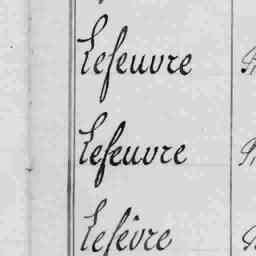 Lefeuvre
Lefeuvre
Lefêvre